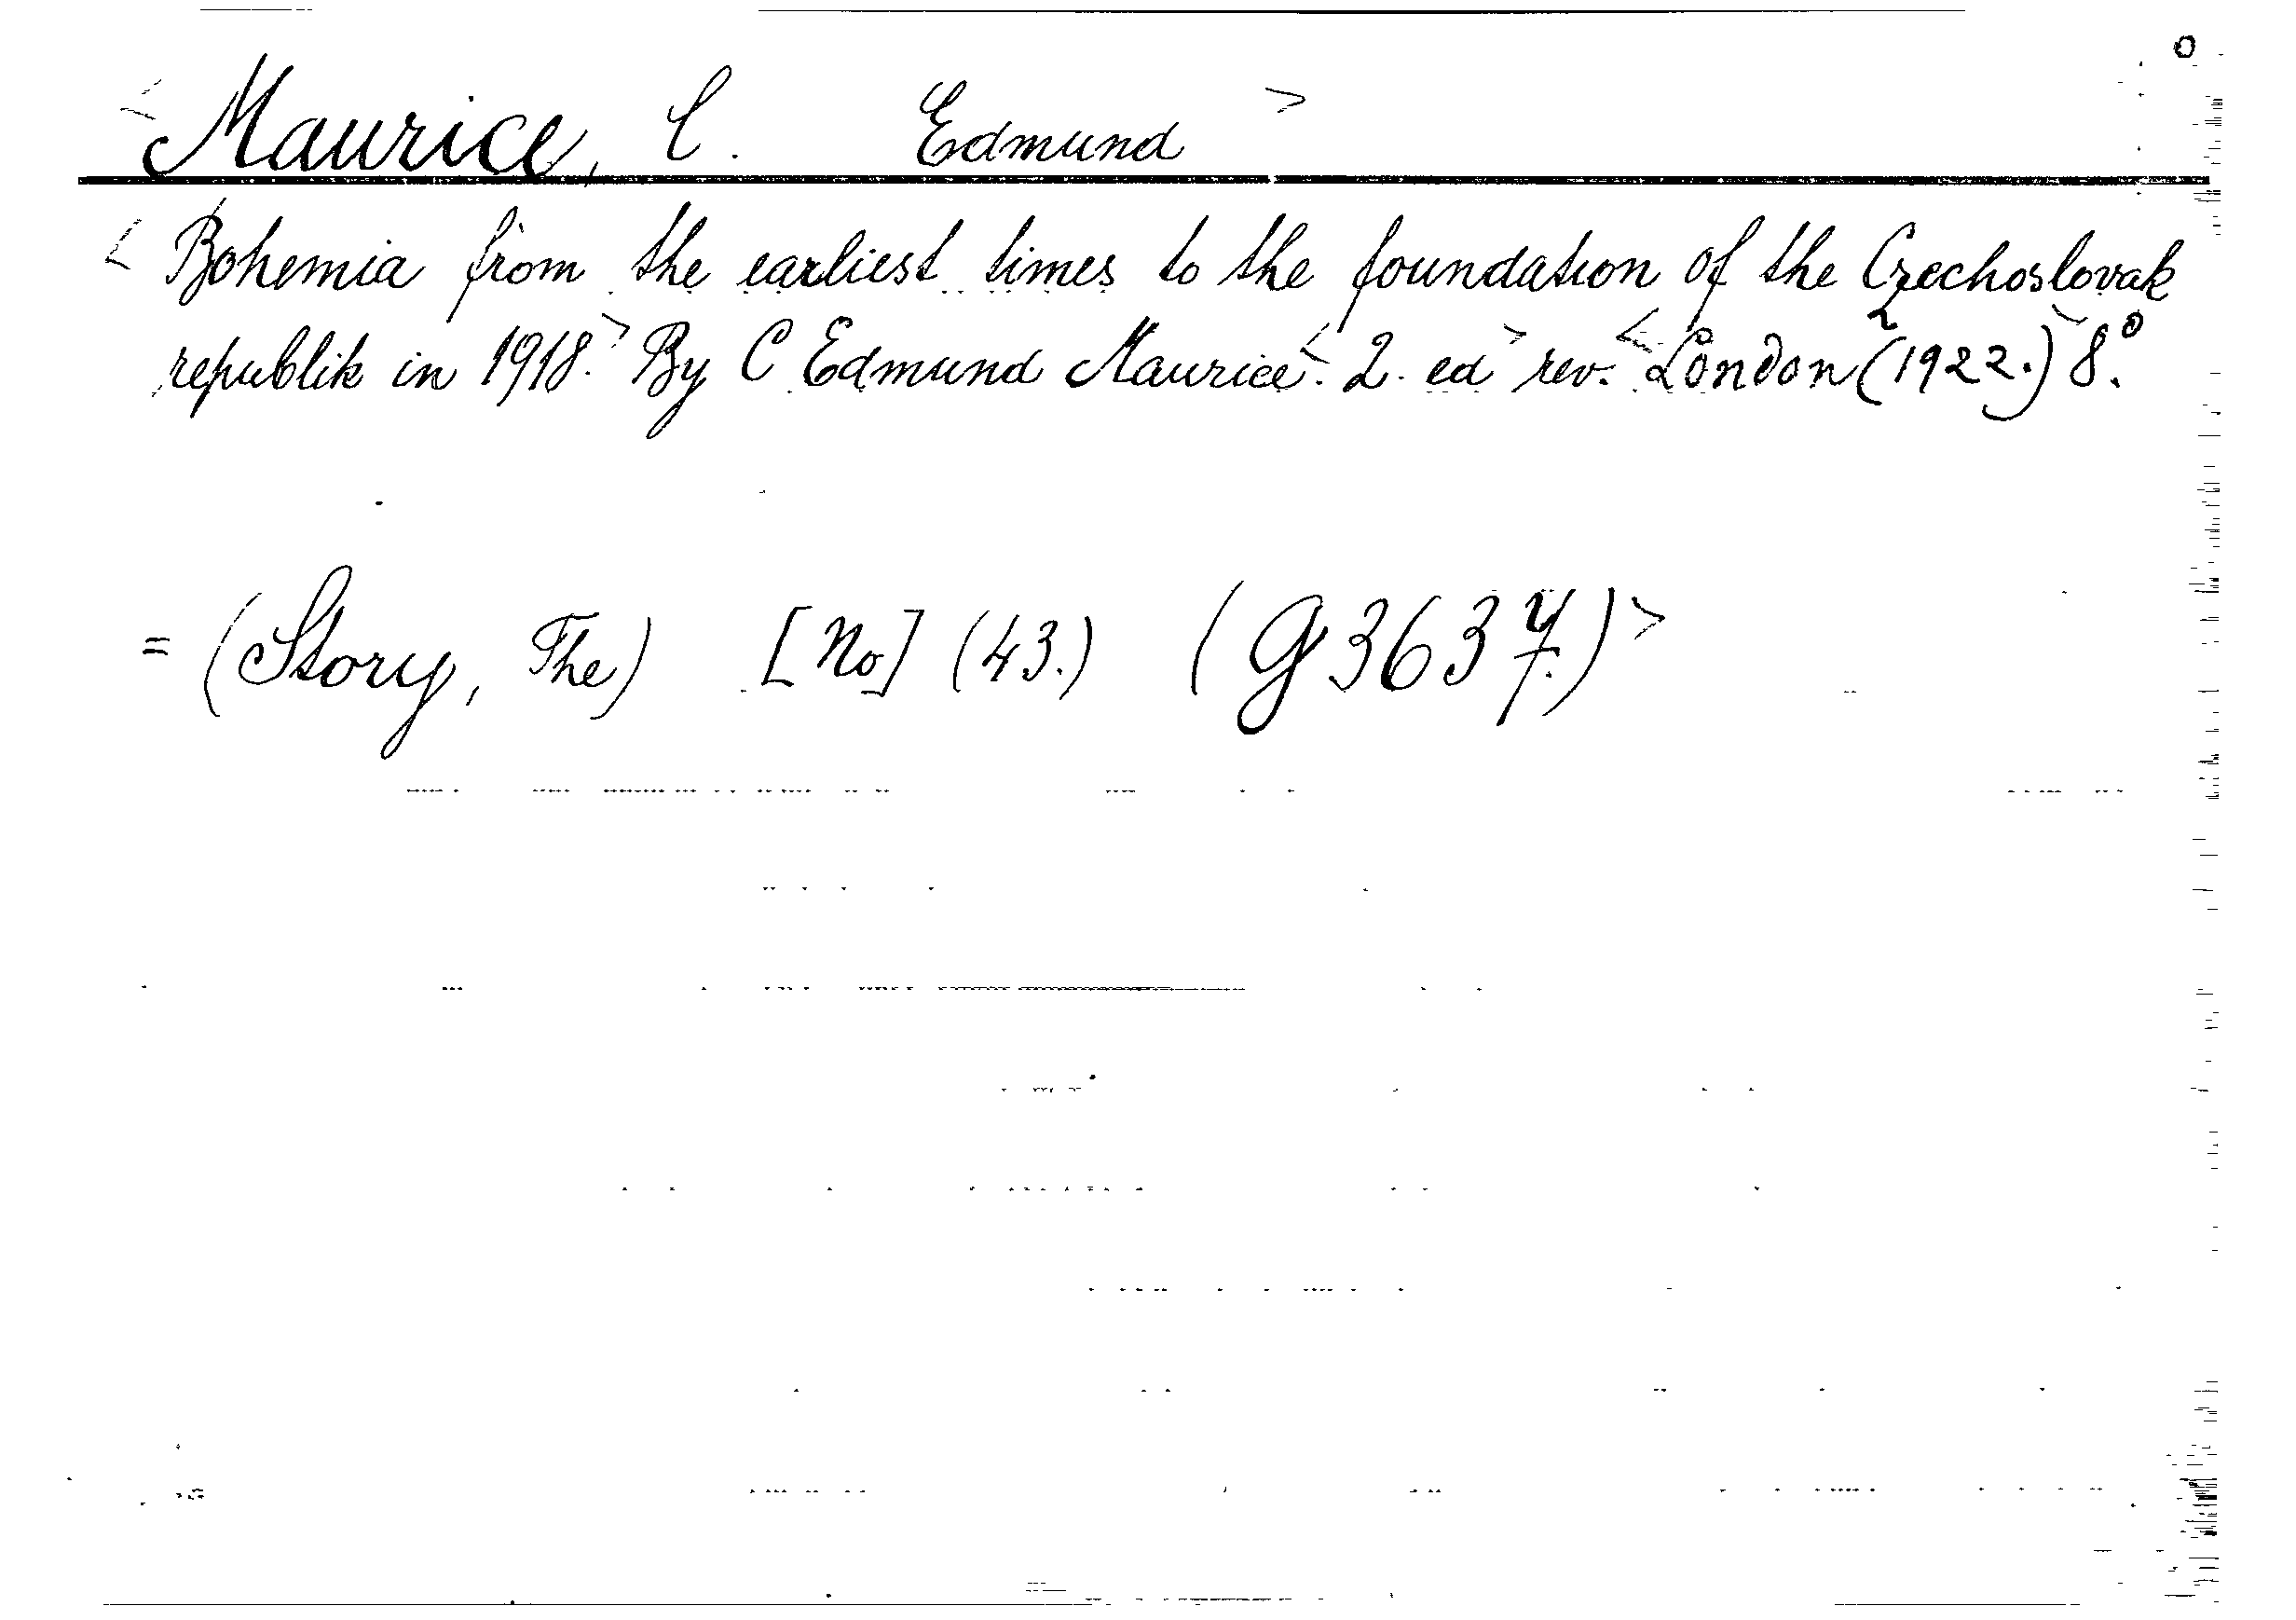 <Maurice, C. Edmund>
<Bohemia from the earliest times to the foundation of the Czechoslovak
republik in 1918.> By C Edmund Maurice. <2. ed> rev. <London (1922.)> 8.°
= (Story, The) [No] (43.) (G 3637.)>